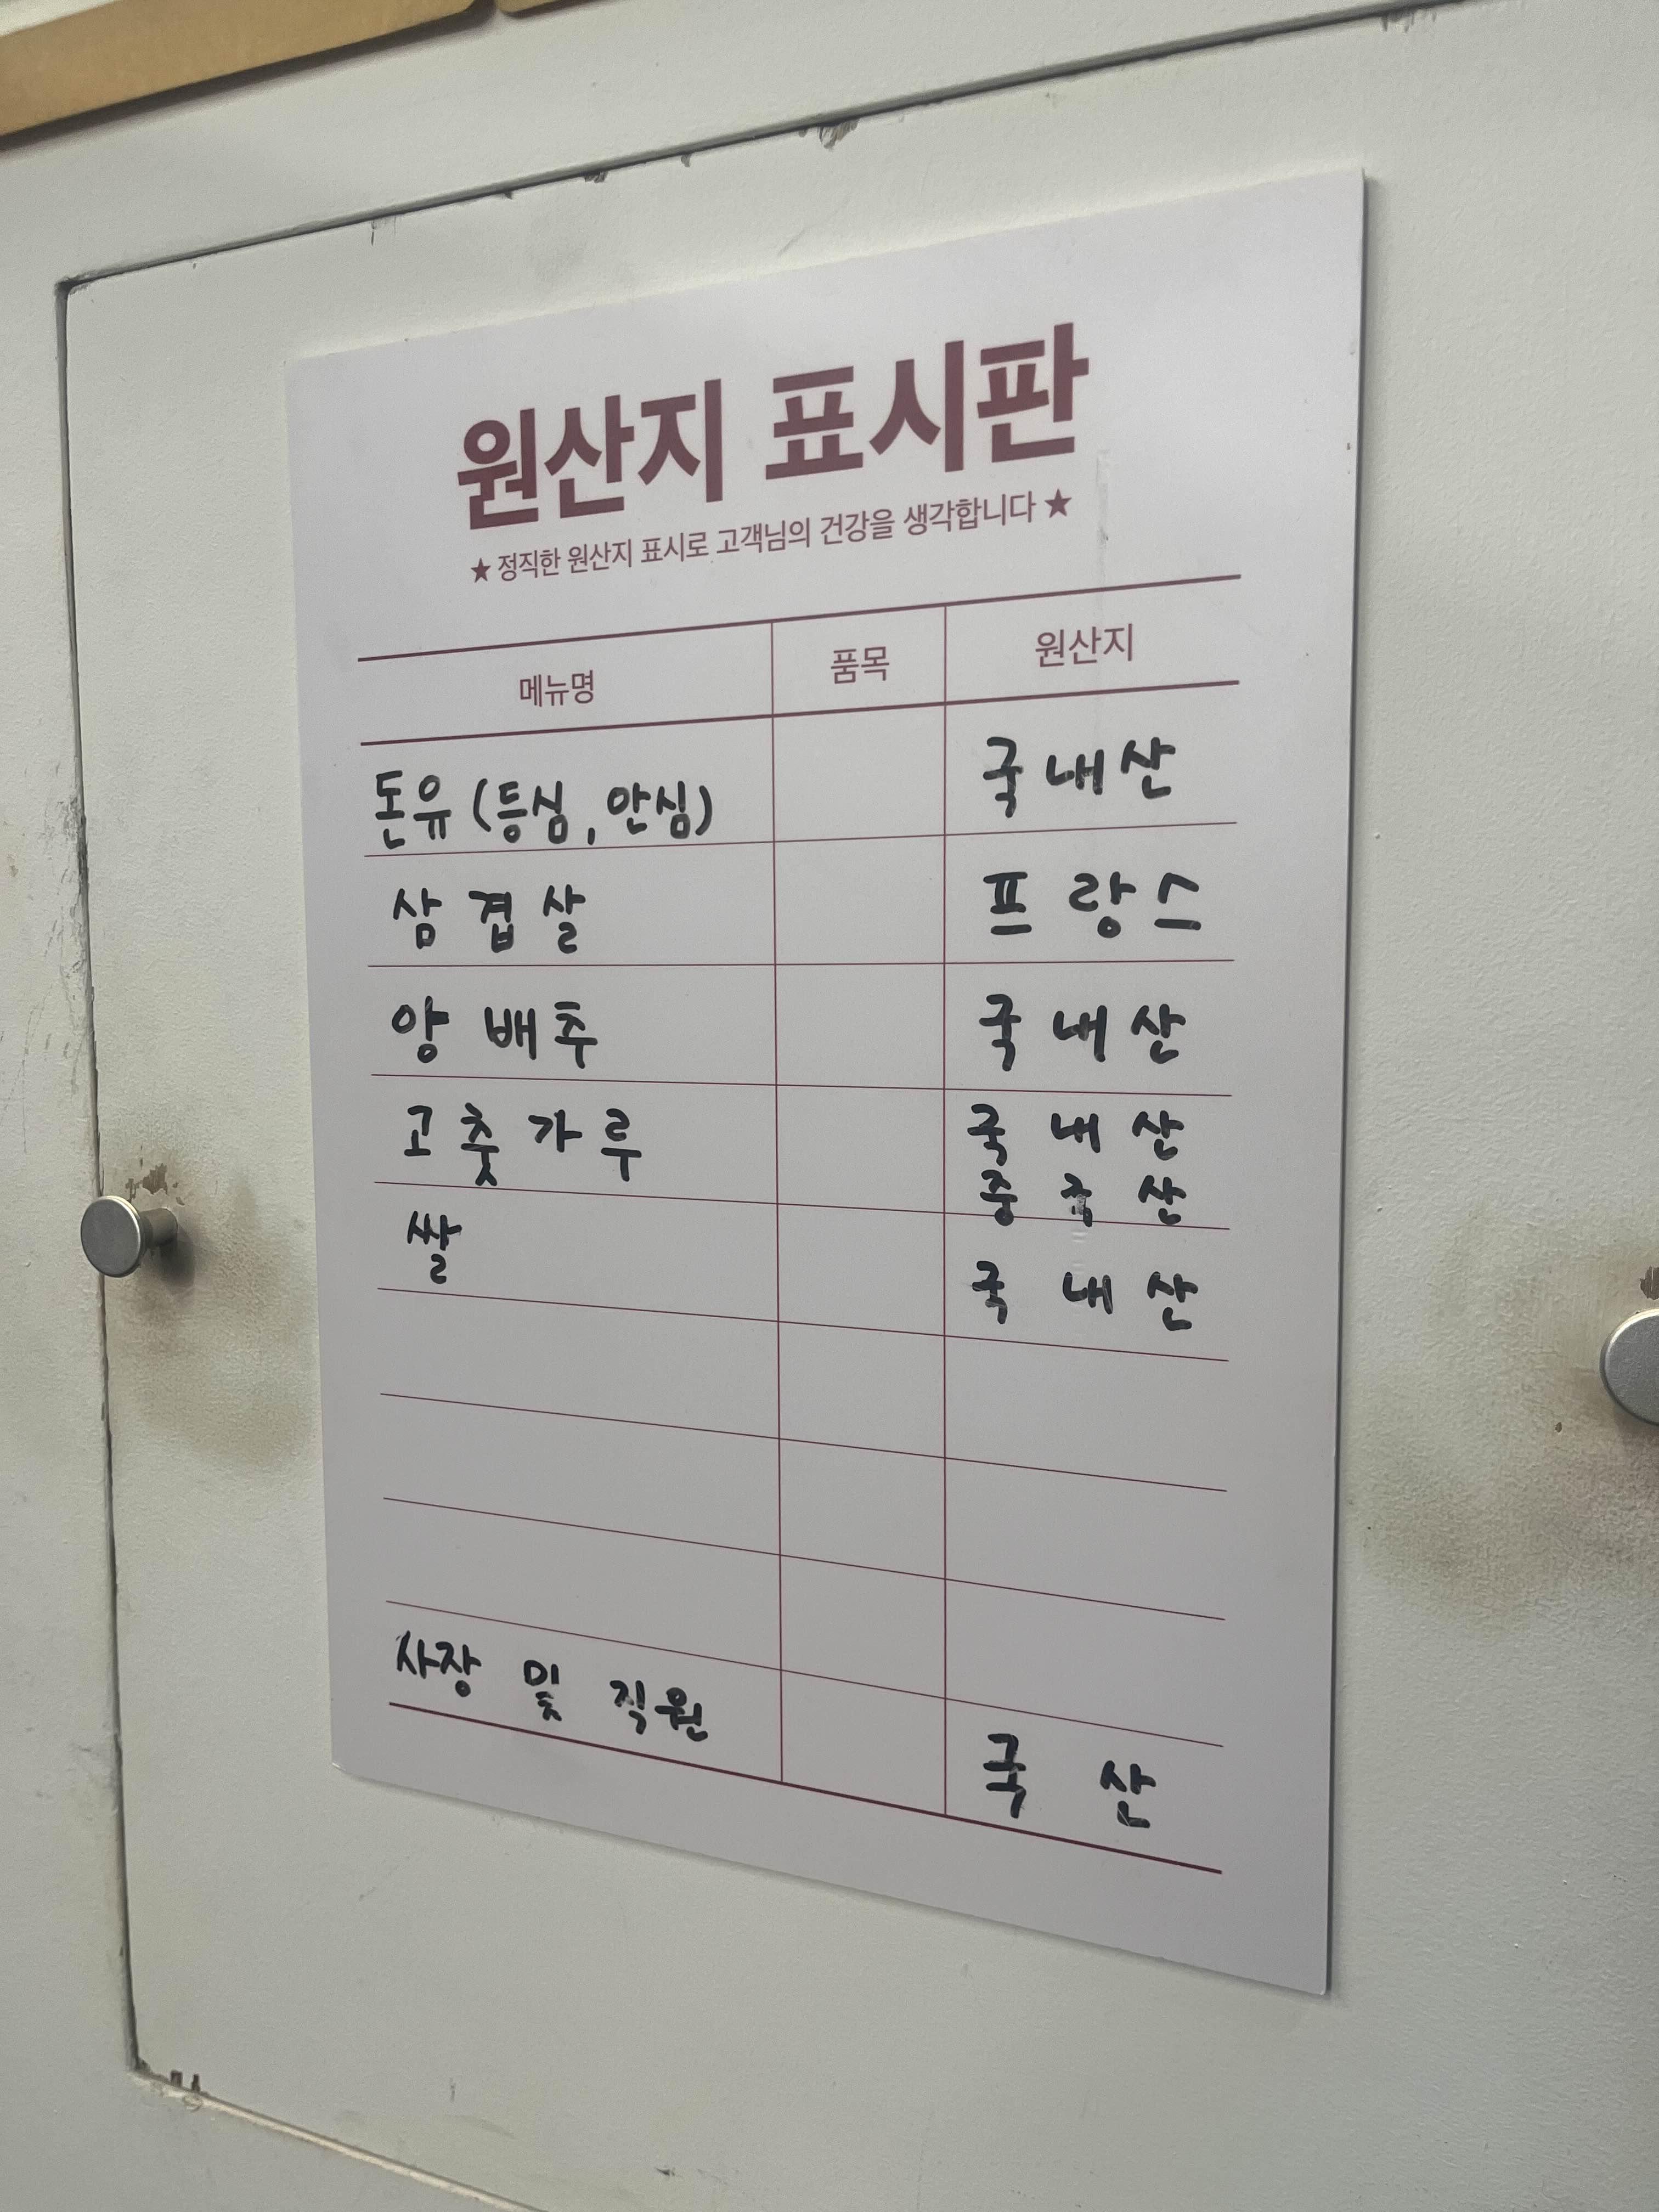 원산지 표시판
★ 정직한 원산지 표시로 고객님의 건강을 생각합니다 ★
메뉴명 품목 원산지
돈유 (등심, 안심) 국내산
삼겹살 프랑스
양배추 국내산
고춧가루 국내산
중국산
쌀 국내산
사장 및 직원 국산